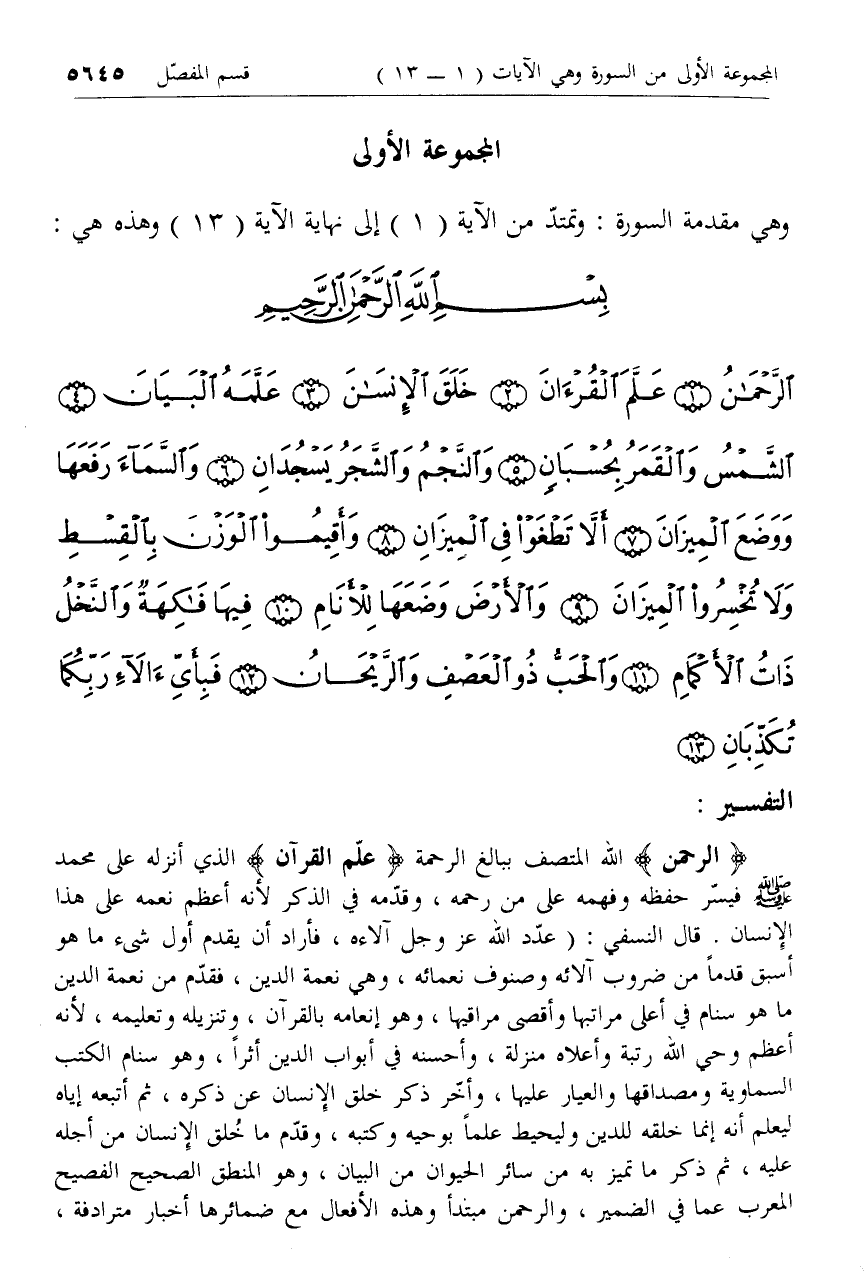 المجموعة الأولى من السورة وهي الآيات ( ١ — ١٣ ) قسم المفصّل ٥٦٤٥
المجموعة الأولى
وهي مقدمة السورة : وتمتدّ من الآية ( ١ ) إلى نهاية الآية ( ١٣ ) وهذه هي :
بِسْمِ ٱللَّهِ ٱلرَّحْمَٰنِ ٱلرَّحِيمِ
ٱلرَّحْمَٰنُ ۝١ عَلَّمَ ٱلْقُرْءَانَ ۝٢ خَلَقَ ٱلْإِنسَٰنَ ۝٣ عَلَّمَهُ ٱلْبَيَانَ ۝٤
ٱلشَّمْسُ وَٱلْقَمَرُ بِحُسْبَانٍ ۝٥ وَٱلنَّجْمُ وَٱلشَّجَرُ يَسْجُدَانِ ۝٦ وَٱلسَّمَآءَ رَفَعَهَا
وَوَضَعَ ٱلْمِيزَانَ ۝٧ أَلَّا تَطْغَوْا۟ فِى ٱلْمِيزَانِ ۝٨ وَأَقِيمُوا۟ ٱلْوَزْنَ بِٱلْقِسْطِ
وَلَا تُخْسِرُوا۟ ٱلْمِيزَانَ ۝٩ وَٱلْأَرْضَ وَضَعَهَا لِلْأَنَامِ ۝١٠ فِيهَا فَٰكِهَةٌ وَٱلنَّخْلُ
ذَاتُ ٱلْأَكْمَامِ ۝١١ وَٱلْحَبُّ ذُو ٱلْعَصْفِ وَٱلرَّيْحَانُ ۝١٢ فَبِأَىِّ ءَالَآءِ رَبِّكُمَا
تُكَذِّبَانِ ۝١٣
التفسير :
﴿ الرحمن ﴾ الله المتصف ببالغ الرحمة ﴿ علّم القرآن ﴾ الذي أنزله على محمد
ﷺ فيسّر حفظه وفهمه على من رحمه ، وقدّمه في الذكر لأنه أعظم نعمه على هذا
الإنسان . قال النسفي : ( عدّد الله عز وجل آلاءه ، فأراد أن يقدم أول شيء ما هو
أسبق قدماً من ضروب آلائه وصنوف نعمائه ، وهي نعمة الدين ، فقدّم من نعمة الدين
ما هو سنام في أعلى مراتبها وأقصى مراقيها ، وهو إنعامه بالقرآن ، وتنزيله وتعليمه ، لأنه
أعظم وحي الله رتبة وأعلاه منزلة ، وأحسنه في أبواب الدين أثراً ، وهو سنام الكتب
السماوية ومصداقها والعيار عليها ، وأخّر ذكر خلق الإنسان عن ذكره ، ثم أتبعه إياه
ليعلم أنه إنما خلقه للدين وليحيط علماً بوحيه وكتبه ، وقدّم ما خُلق الإنسان من أجله
عليه ، ثم ذكر ما تميز به من سائر الحيوان من البيان ، وهو المنطق الصحيح الفصيح
المعرب عما في الضمير ، والرحمن مبتدأ وهذه الأفعال مع ضمائرها أخبار مترادفة ،